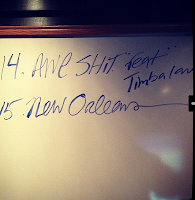 14. SHIT "Feat"
Timbalan
15. New Orleans